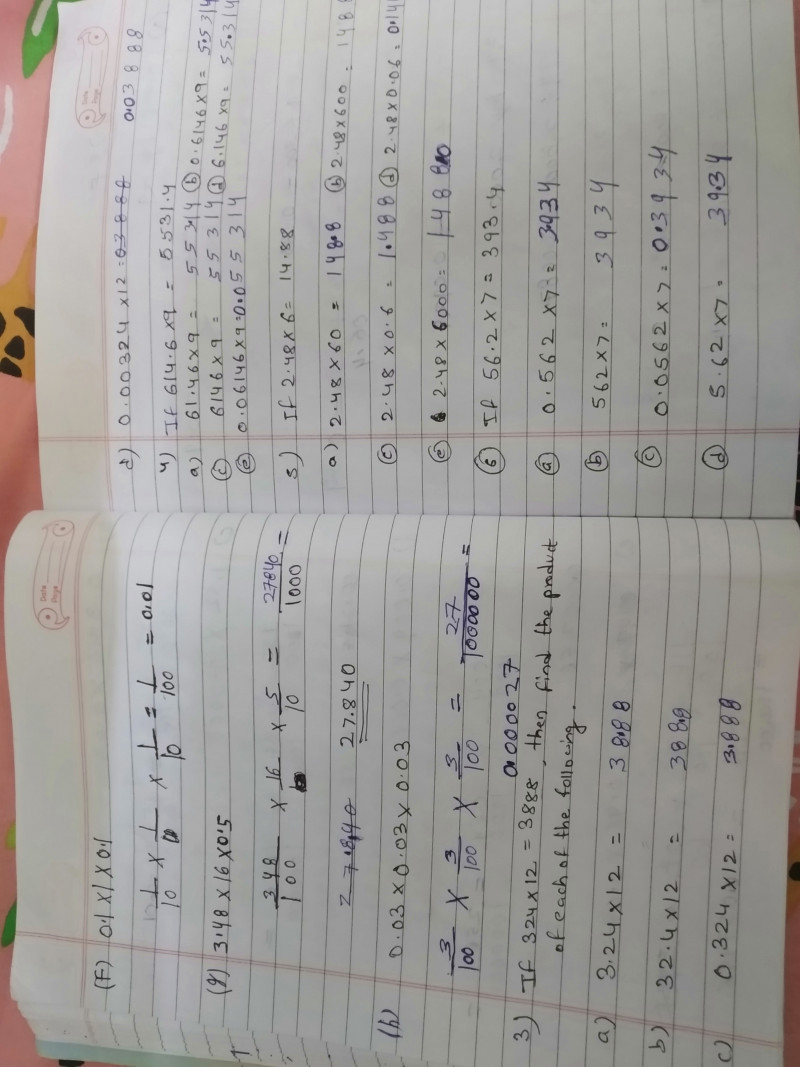 Date
Page
(f) 0.1 X 1 X 0.1
1/10 X 1/ X 1/10 = 1/100 = 0.01
(g) 3.48 X 16 X 0.5
348/100 X 16 X 5/10 = 27840/1000 =
27.840
(h) 0.03 X 0.03 X 0.03
3/100 X 3/100 X 3/100 = 27/1000000 =
0.000027
3) If 324X12 = 3888, then find the product
of each of the following.
a) 3.24X12 = 38.88
b) 32.4X12 = 388.8
c) 0.324 X12 = 3.888
Date
Page
d) 0.00324 X12 = 0.03888
4) If 614.6 X9 = 5531.4
a) 61.46X9 = 55314 (b) 0.6146X9 = 5.5314
(c) 6146X9 = 55314 (d) 6.146X9 = 55.314
(e) 0.06146X9=0.055314
5) If 2.48X6= 14.88
a) 2.48X60 = 148.8 (b) 2.48X600 = 1488
(c) 2.48X0.6 = 1.488 (d) 2.48X0.06 = 0.148
(e) 2.48X6000= 14880
(6) If 56.2X7 = 393.4
(a) 0.562X7 = 3934
(b) 562X7= 3934
(c) 0.0562X7=0.3934
(d) 5.62X7= 39.34